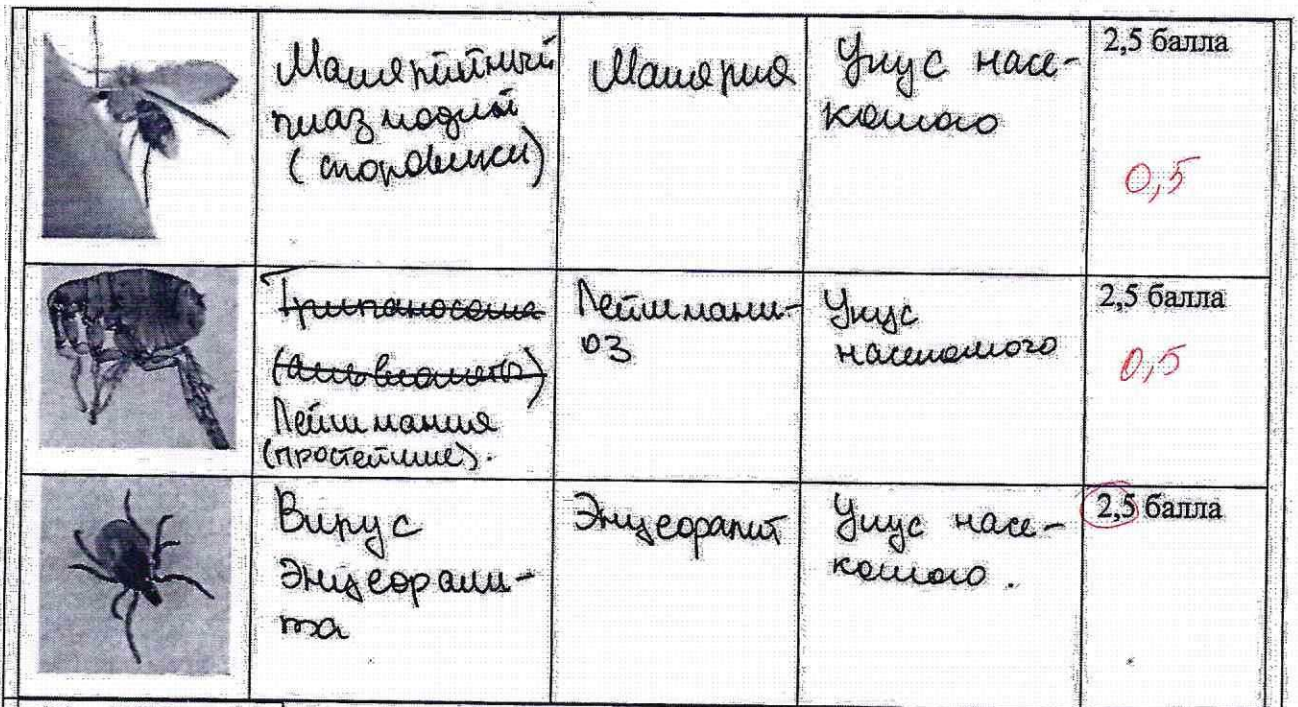 Малярийный
плазмодий
(споровики)
Малярия
Укус насе-
комого
2,5 балла
0,5
Трипаносома
Лейшмания
(простейшие).
Лейшмани-
оз
Укус
насекомого
2,5 балла
0,5
Вирус
Энцефали-
та
Энцефалит
Укус насе-
комого.
2,5 балла